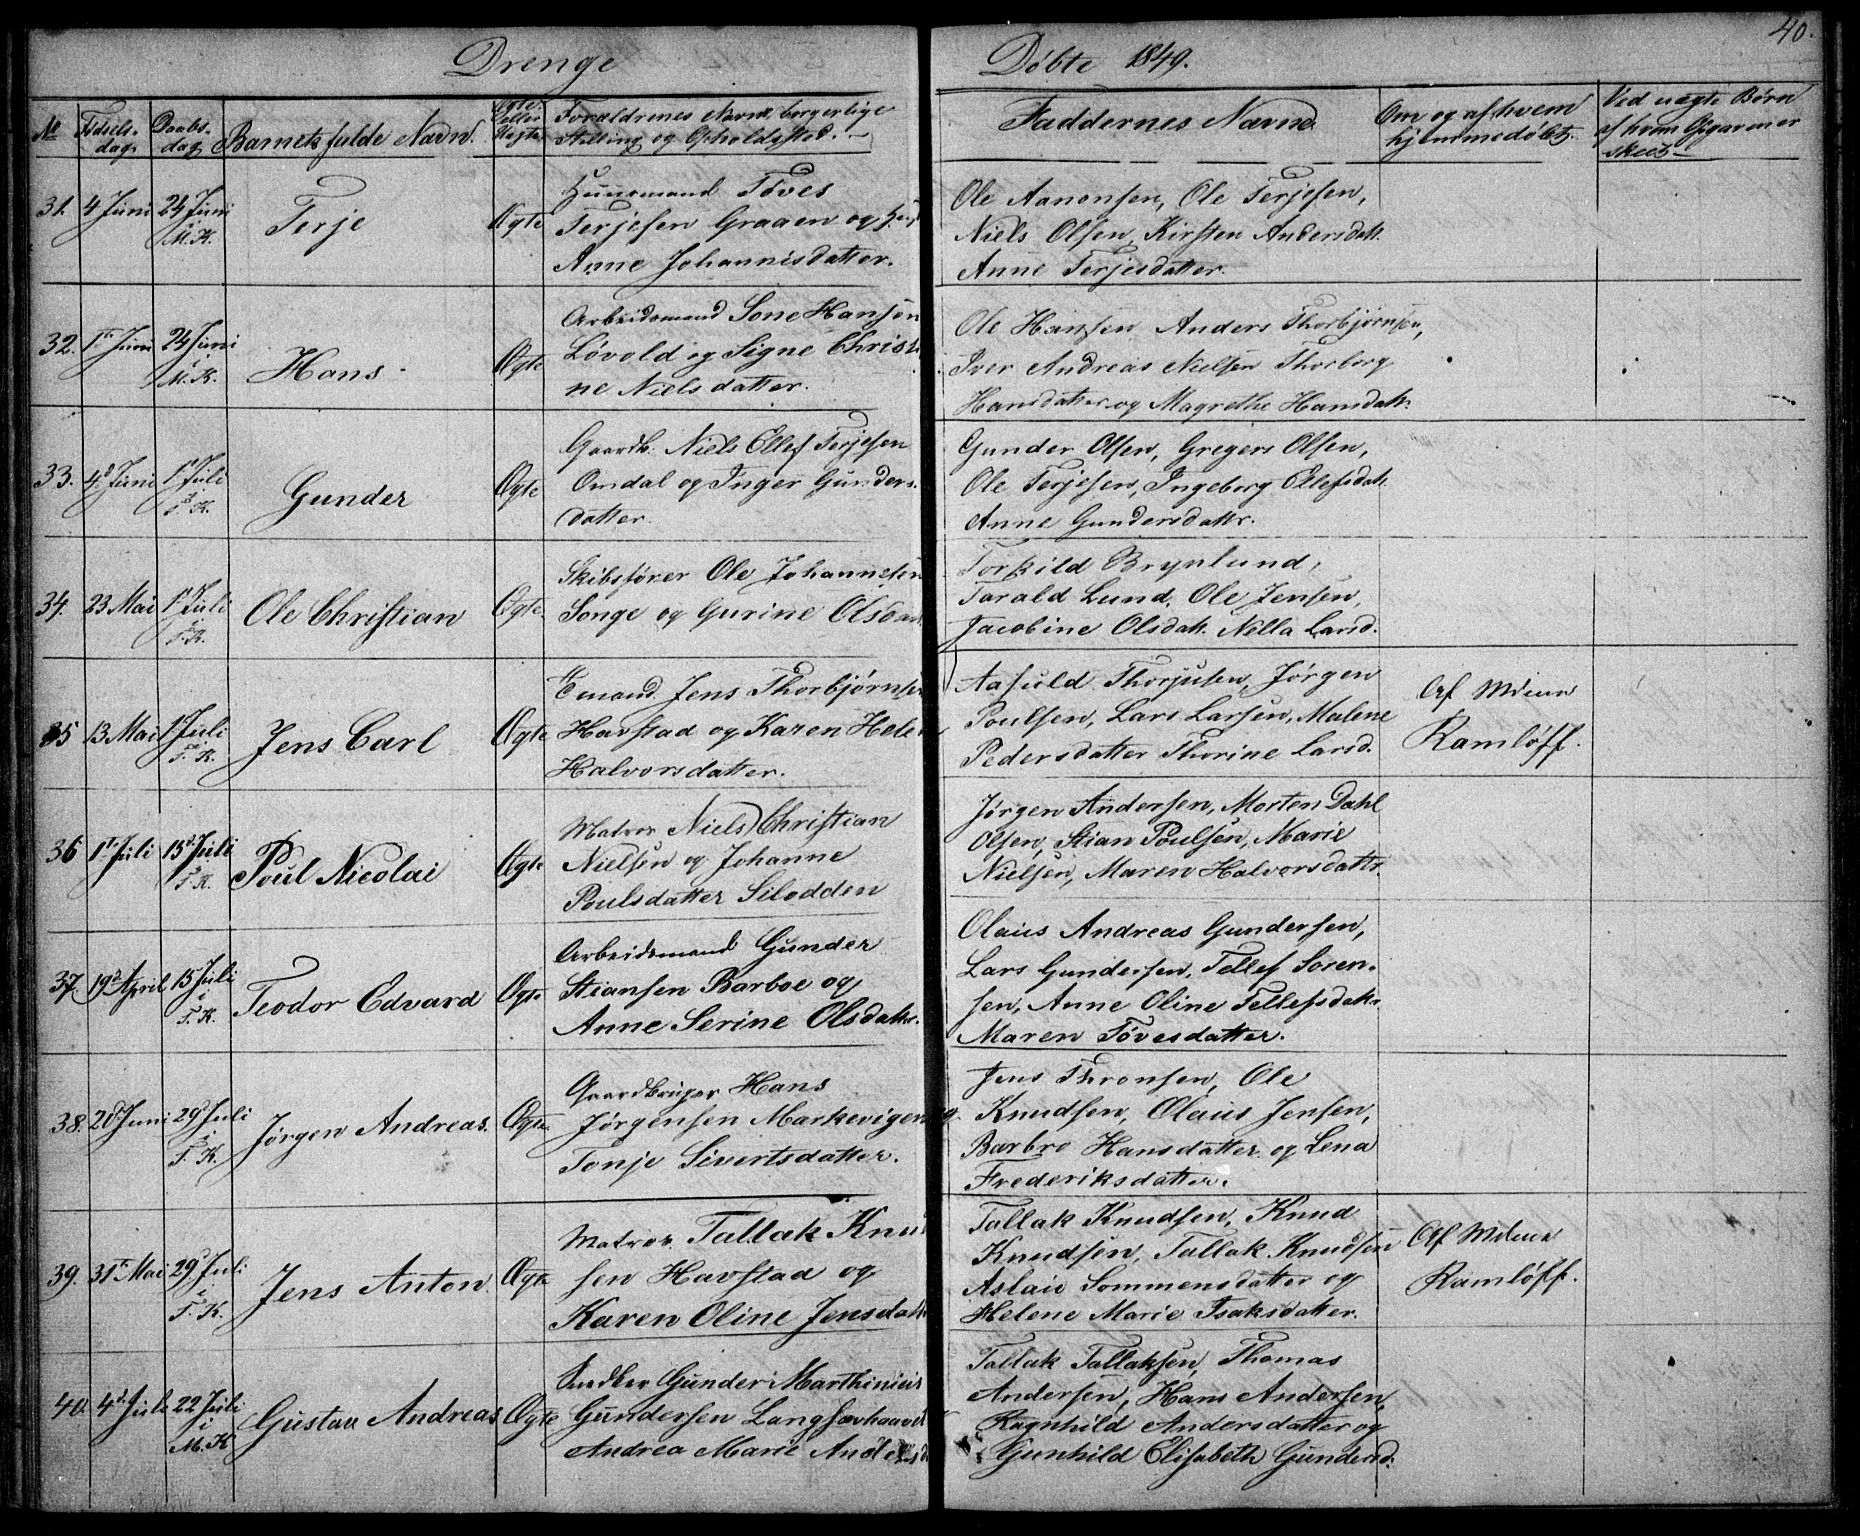 Drenge
Døbte 1849.
40.
No Fødsels- dag Daabs- dag Barnets fulde Navn. Ægte eller Uægte Forældrenes Navn, borgerlige Stilling og Opholdsted. Faddernes Navne Om og af hvem hjemmedøbt. Ved uægte Børn
31. 4 Juni 24 Juni i M. K. Terje Ægte
Huusmand Töves
Terjesen Graaen og
Anne Johannisdatter.
Ole Aanonsen, Ole Terjesen,
Niels Olsen, Kirsten Andersdatt.
Anne Terjesdatter.
32. 1ste Juni 24 Juni i M. K. Hans Ægte
Arbeidsmand Sone Hansøn
Løvold og Signe Christi
ne Nielsdatter.
Ole Hansen Anders Thorbjørnsen,
Iver Andreas Nielsen Thorborg
Hansdatter og Magrethe Hansdatt.
33. 4d Juni 1 Juli i T. K. Gunder Ægte
Gaardb. Niels Ellef Terjesen
Omdal og Inger Gunders
datter.
Gunder Olsen, Gregers Olsen,
Ole Terjesen, Ingeborg Ellefsdatt.
Anne Gundersdattr.
34. 23 Mai 1 Juli i T. K. Ole Christian Ægte
Skibsfører Ole Johannesen
Songe og Gurine Olsdatt
Torkild Brynlund,
Tarald Lund, Ole Jensen,
Jacobine Olsdatt. Nella Larsd.
35 13 Mai 1 Juli i T. K. Jens Carl Ægte
Jens Thorbjørnsen
Havstad og Karen Helene
Halvorsdatter.
Aasuld Thorjusen, Jørgen
Poulsen, Lars Larsen, Malene
Pedersdatter Thorine Larsd.
Af
Ramløff.
36 1 Juli 15 Juli i T. K. Poul Nicolai Ægte
Matros Niels Christian
Nielsen og Johanne
Poulsdatter Silodden
Jørgen Andersen, Morten Dahl
Olsen, Stian Poulsen, Marie
Nielsen, Maren Halvorsdattr.
37. 19d April 15 Juli i T. K. Teodor Edvard Ægte
Arbeidsmand Gunder
Stiansen Barboe og
Anne Serine Olsdattr.
Olaus Andreas Gundersen,
Lars Gundersen, Tellef Soren-
sen, Anne Oline Tellefsdattr
Maren Tövesdatter.
38. 20d Juni 29 Juli i T. K. Jørgen Andreas. Ægte
Gaardbruger Hans
Jørgensen Markevigen og
Tonje Sivertsdatter.
Jens Thronsen, Ole
Knudsen, Olaus Jensen,
Barbro Hansdatter og Lena
Frederiksdatter.
39. 31te Mai 29 Juli i T. K. Jens Anton. Ægte
Matros Tallak Knud
sen Havstad og
Karen Oline Jensdatt
Tallak Knudsen, Knud
Knudsen, Tallak Knudsen
Aslaug Sommensdatter og
Helene Marie Isaksdatter.
Af
Ramløff.
40. 4d Juli 22 Juli i M. K. Gustav Andreas Ægte
Gunder Marthinius
Gundersen
Andrea Marie Andersd
Tallak Tallaksen, Thomas
Andersen, Hans Andersen,
Ragnhild Andersdatter og
Gunhild Elisabeth Gundersd.